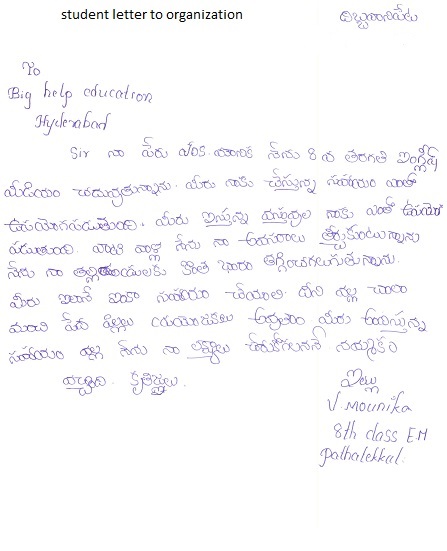 student letter to organization
To
Big help education
Hyderabad
Sir నా పేరు మౌనిక నేను 8 వ తరగతి ఇంగ్లీష్
మీడియం చదువుతున్నాను. మీరు నాకు చేస్తున్న సహాయం ఎంతో
ఉపయోగపడుతుంది. మీరు ఇస్తున్న వస్తువుల నాకు ఎంతో ఉపయో
పడుతుంది. వాటి వల్ల నేను నా అవసరాలు తీర్చుకుంటున్నాను
నేను నా తల్లితండ్రులకు కొంత భారం తగ్గించగలుగుతున్నాను.
మీరు ఇలానే ఇంకా సహాయం చేయాలి. దీని వల్ల చాలా
మంది పేద పిల్లలు మీరు అందిస్తున్న
సహాయం వల్ల నేను నా లక్ష్యాలు చేరుకోగలనని నమ్మకం
వచ్చింది. కృతజ్ఞతలు.
ఇట్లు
V. Mounika
8th class E.M
pathalekkal.